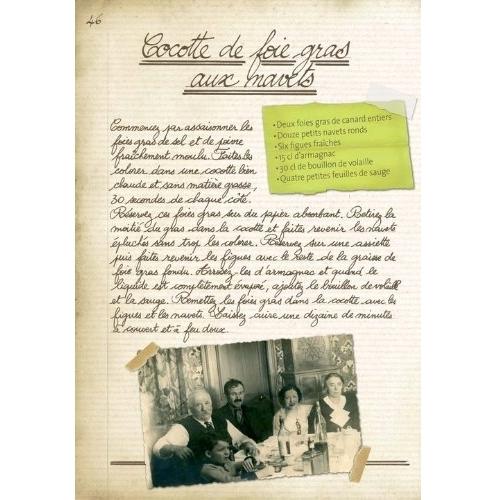 46
Cocotte de foie gras
aux navets
• Deux foies gras de canard entiers
• Douze petits navets ronds
• Six figues fraîches
• 15 cl d'armagnac
• 30 cl de bouillon de volaille
• Quatre petites feuilles de sauge
Commencez par assaisonner les
foies gras de sel et de poivre
fraîchement moulu. Faites les
colorer dans une cocotte bien
chaude et sans matière grasse,
30 secondes de chaque côté.
Réservez ces foies gras sur du papier absorbant. Retirez la
moitié du gras dans la cocotte et faites revenir les navets
épluchés sans trop les colorer. Réservez sur une assiette
puis faites revenir les figues avec le reste de la graisse de
foie gras fondu. Arrosez les d'armagnac et quand le
liquide est complètement évaporé, ajoutez le bouillon de volaille
et la sauge. Remettez les foies gras dans la cocotte avec les
figues et les navets. Laissez cuire une dizaine de minutes
à couvert et à feu doux.